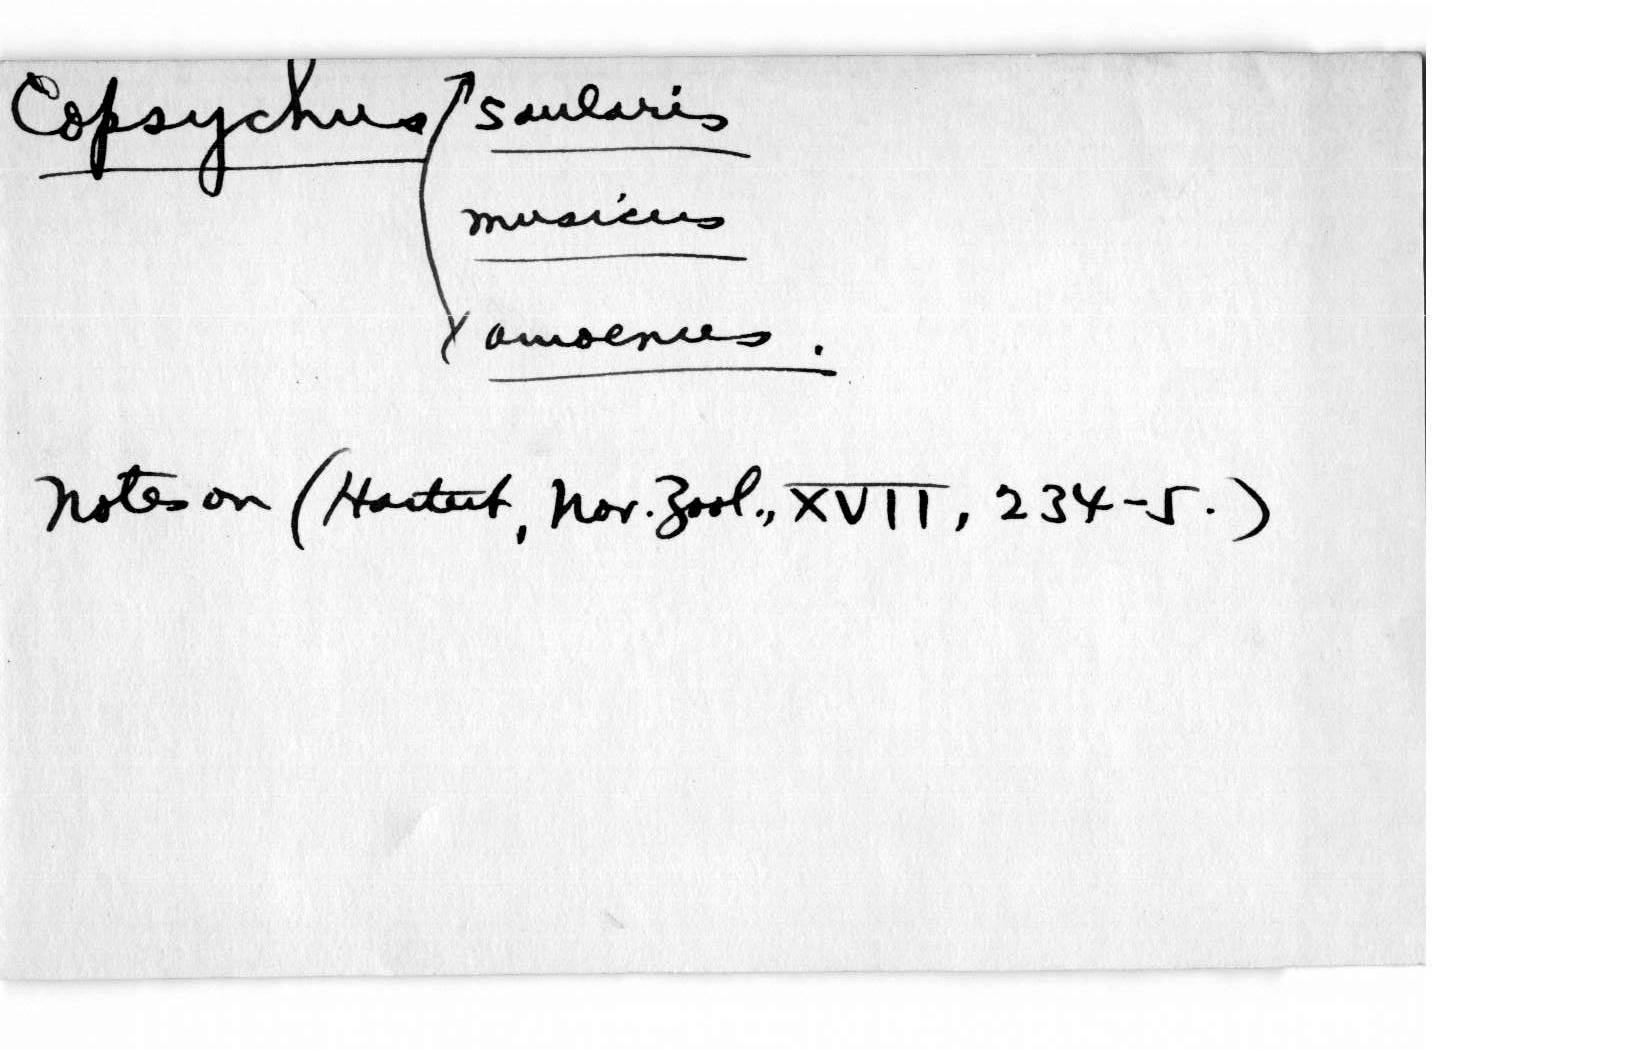 Copsychus saularis
musicus
amoenus.
Notes on (Hartert, Nov. Zool., XVII, 234-5.)